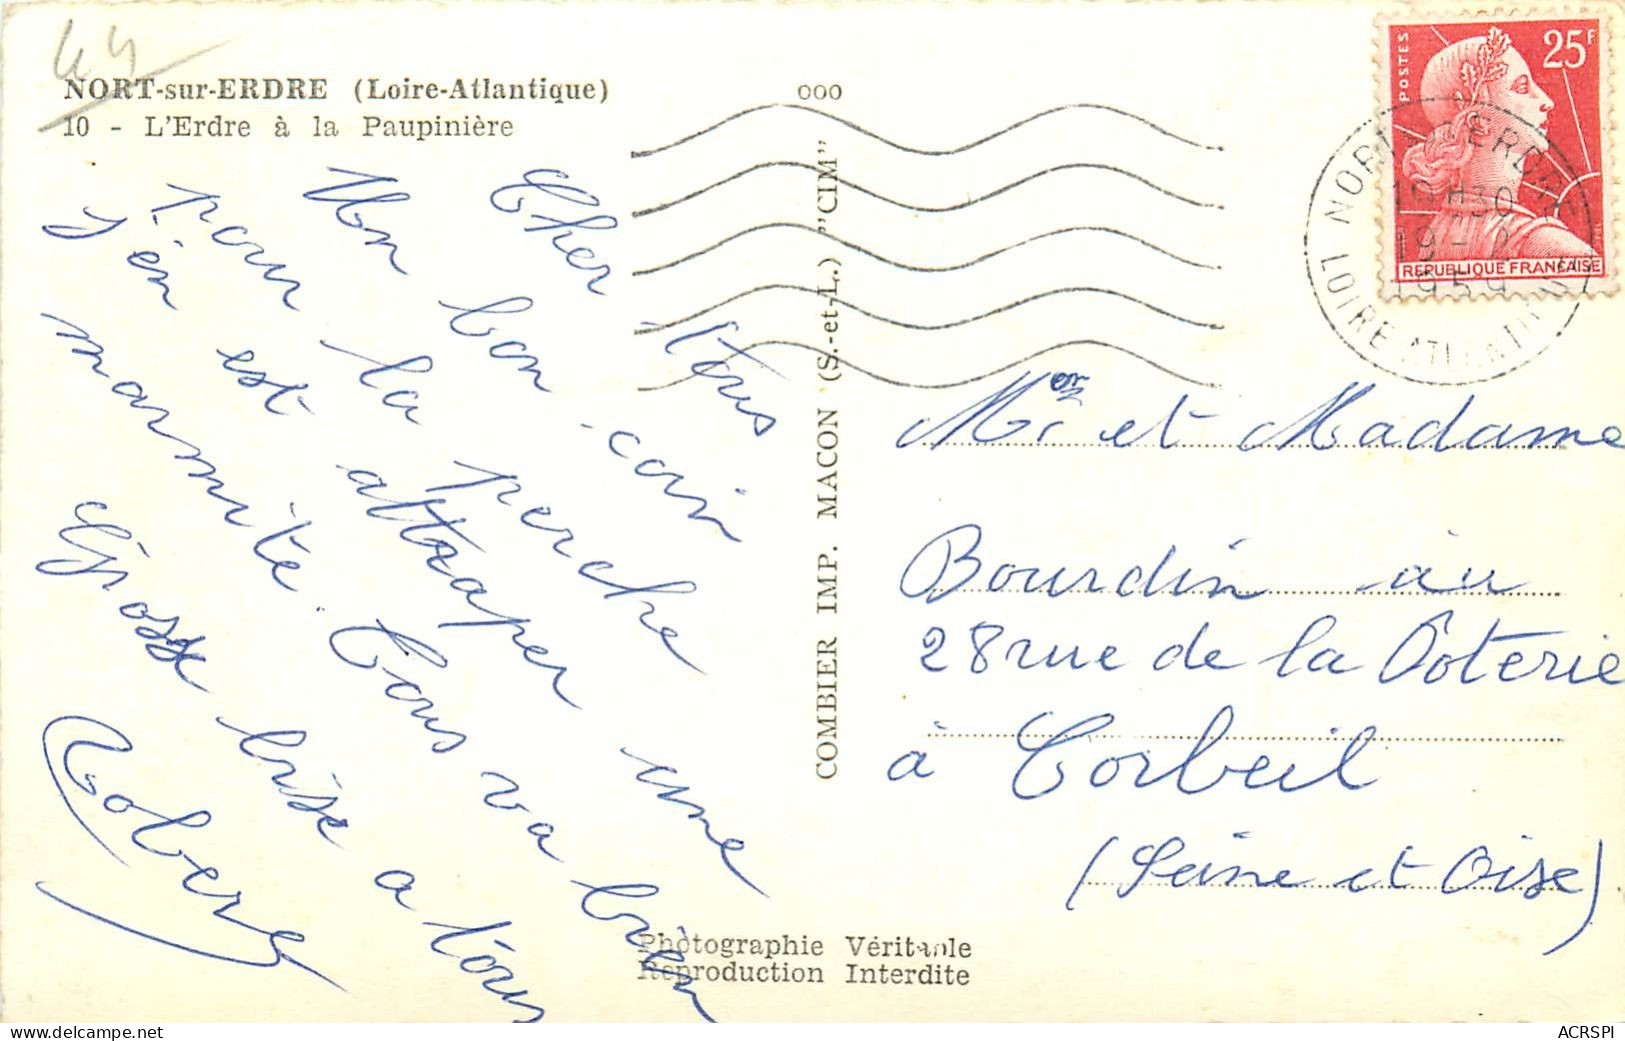 44
NORT-sur-ERDRE (Loire-Atlantique)
10 - L'Erdre à la Paupinière
Cher tous
Mn bon coin
pour la perche
J'en est attraper une
marmite. Tous va bien
Grosse bise a tous
Robert
COMBIER IMP. MACON (S.-et-L.) "CIM"
000
POSTES
25F
REPUBLIQUE FRANÇAISE
NORT S ERDRE
19H30
19-2
1959
LOIRE ATLANTIQUE
Mr et Madame
Bourdin au
28 rue de la Poterie
à Corbeil
(Seine et Oise)
Photographie Véritable
Reproduction Interdite
ACRSPI